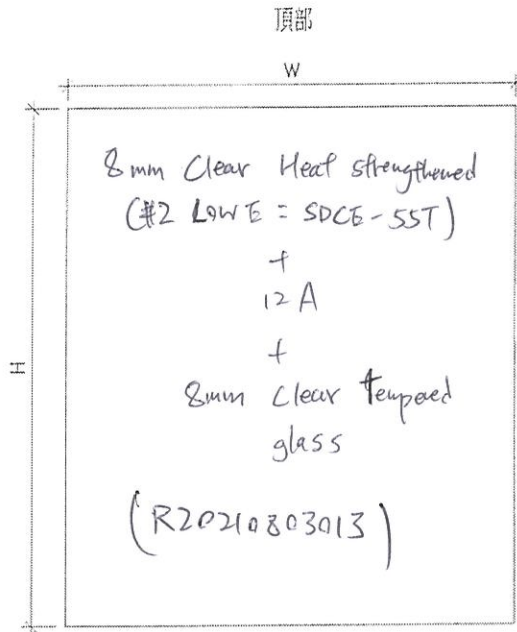 頂部
W
H
8mm Clear Heat strengthened
(#2 LOW E = SDCE-55T)
+
12 A
+
8mm Clear tempered
glass
(R20210803013)